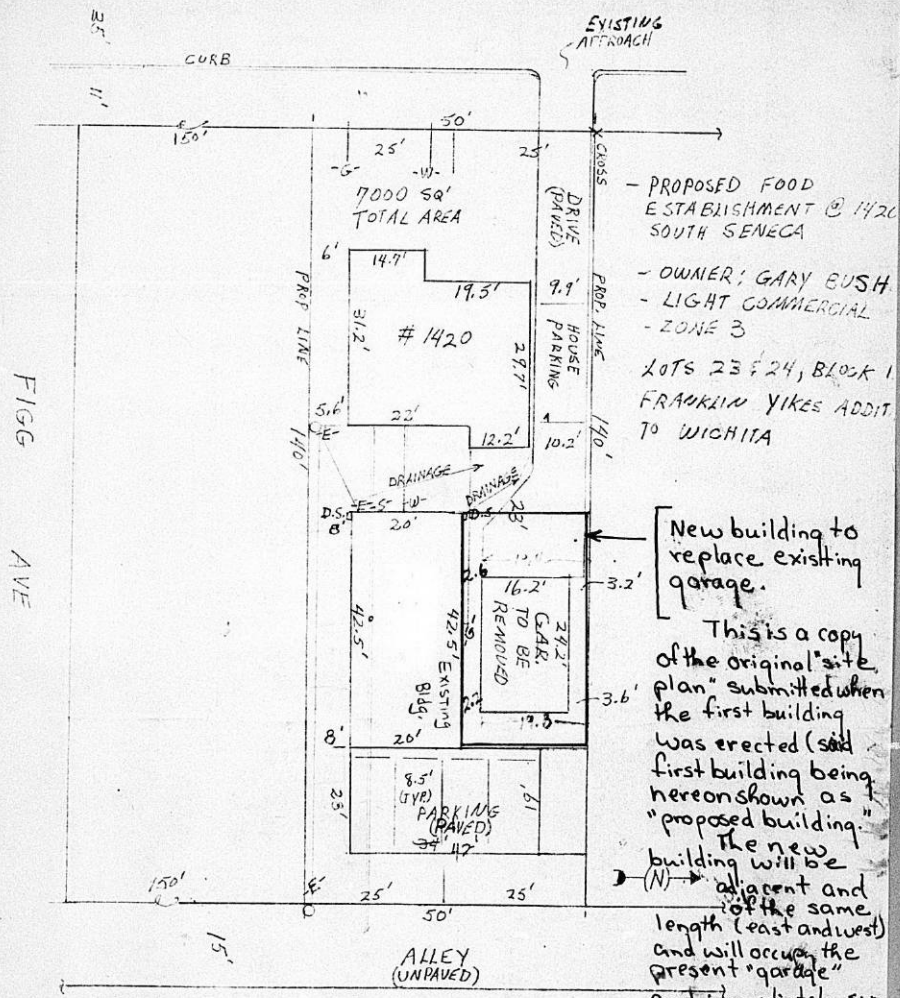 EXISTING
APPROACH
35'
CURB
11'
150'
50'
25'
25'
CROSS
-G-
-W-
7000 SQ'
TOTAL AREA
DRIVE
(PAVED)
6'
14.7'
19.5'
9.9'
PROP LINE
PROP. LINE
31.2'
# 1420
29.7'
HOUSE
PARKING
5.6'
-E-
22'
12.2'
10.2'
140'
140'
DRAINAGE
DRAINAGE
D.S.
-E-S-
-W-
D.S.
23'
8'
20'
2.6
16.2'
3.2'
42.5'
42.5'
24.2'
GAR.
TO BE
REMOVED
EXISTING
Bldg.
2.2
3.6'
8'
20'
23'
8.5'
(TYP.)
19'
PARKING
(PAVED)
42'
150'
25'
25'
50'
15'
ALLEY
(UNPAVED)
FIGG AVE
- PROPOSED FOOD
ESTABLISHMENT @ 1420
SOUTH SENECA
- OWNER: GARY BUSH
- LIGHT COMMERCIAL
- ZONE 3
LOTS 23 & 24, BLOCK 1
FRANKLIN YIKES ADDIT
TO WICHITA
New building to
replace existing
garage.
This is a copy
of the original "site
plan" submitted when
the first building
was erected (said
first building being
hereon shown as
"proposed building."
The new
building will be
(N)
adjacent and
of the same
length (east and west)
and will occupy the
present "garage"